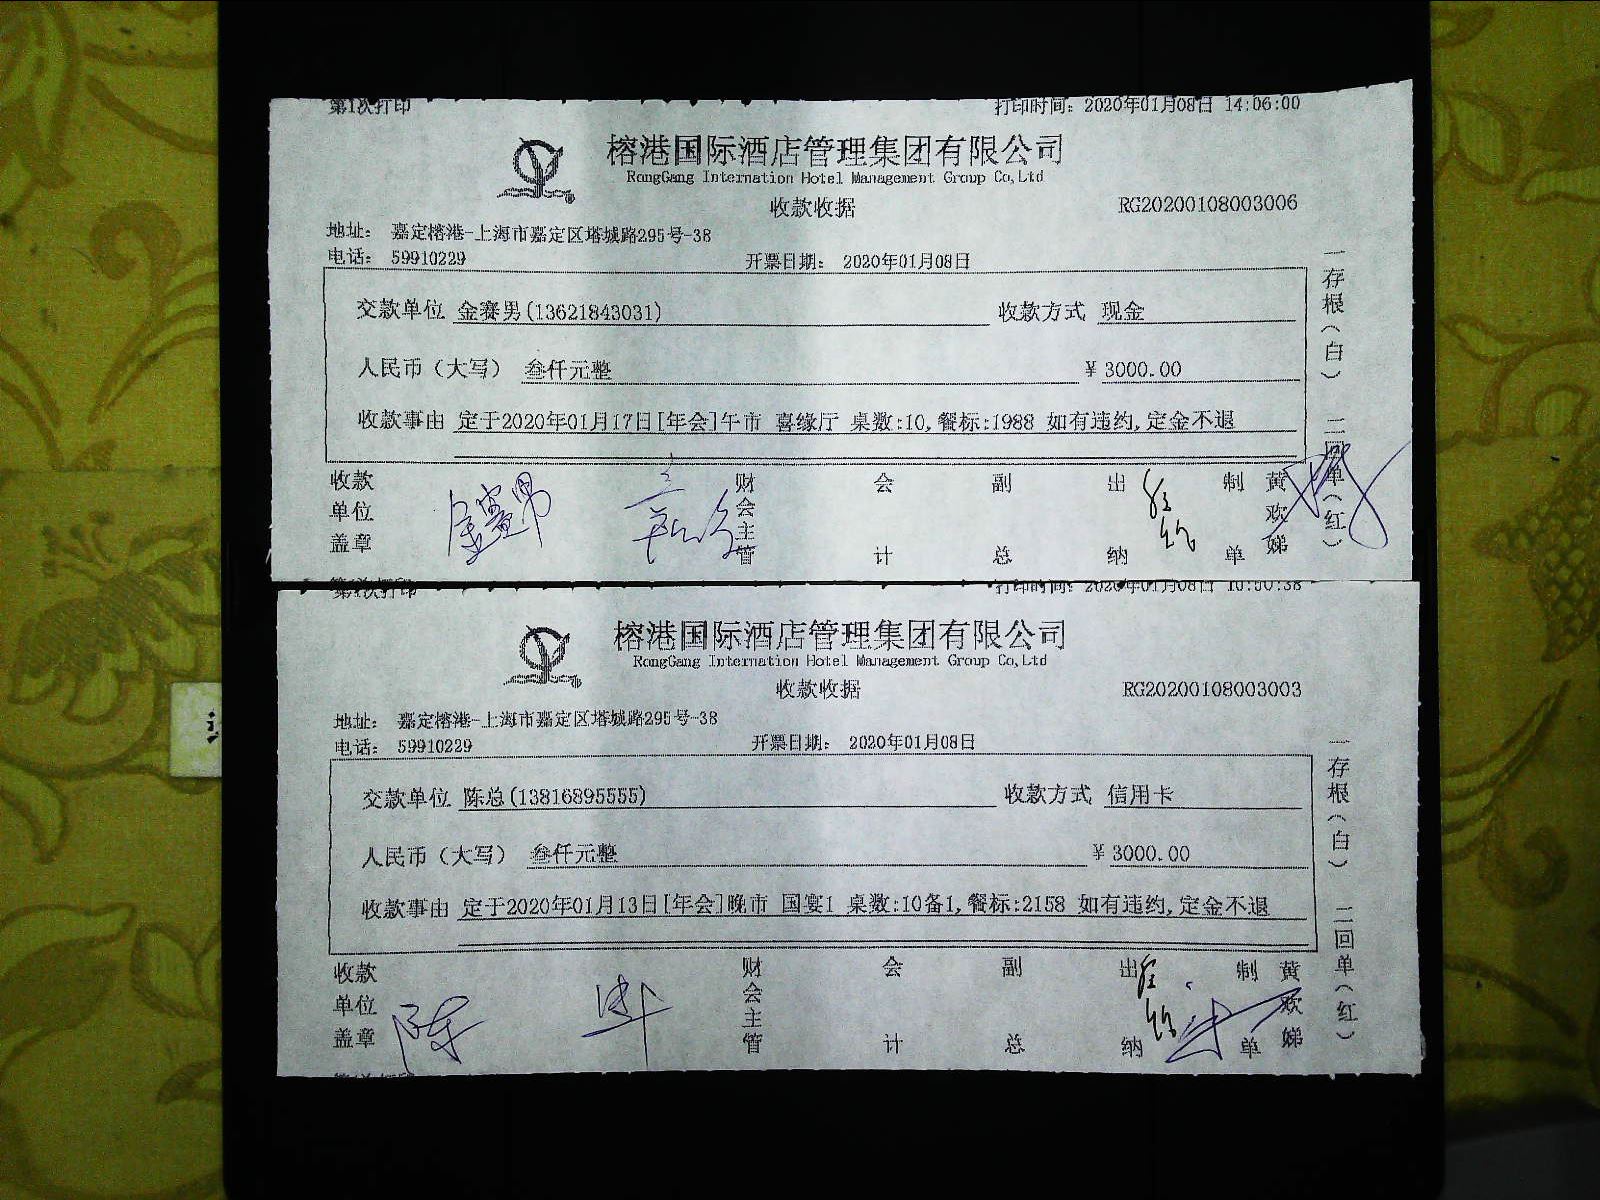 第1次打印 打印时间：2020年01月08日 14:06:00
榕港国际酒店管理集团有限公司
RongGang Internation Hotel Management Group Co,Ltd
收款收据 RG20200108003006
地址： 嘉定榕港-上海市嘉定区塔城路295号-38
电话： 59910229 开票日期： 2020年01月08日
交款单位 金赛男(13621843031) 收款方式 现金
人民币（大写） 叁仟元整 ¥ 3000.00
收款事由 定于2020年01月17日[年会]午市 喜缘厅 桌数:10,餐标:1988 如有违约,定金不退
收款单位盖章 金赛男 财会主管 会计 副总 出纳 制单 黄欢娣
一存根（白） 二回单（红）
第1次打印 打印时间：2020年01月08日 10:50:38
榕港国际酒店管理集团有限公司
RongGang Internation Hotel Management Group Co,Ltd
收款收据 RG20200108003003
地址： 嘉定榕港-上海市嘉定区塔城路295号-38
电话： 59910229 开票日期： 2020年01月08日
交款单位 陈总(13816895555) 收款方式 信用卡
人民币（大写） 叁仟元整 ¥ 3000.00
收款事由 定于2020年01月13日[年会]晚市 国宴1 桌数:10备1,餐标:2158 如有违约,定金不退
收款单位盖章 陈 财会主管 会计 副总 出纳 制单 黄欢娣
一存根（白） 二回单（红）